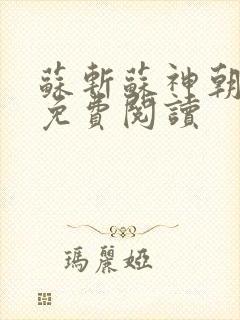 蘇斬蘇神朝
免費閱讀
瑪麗婭